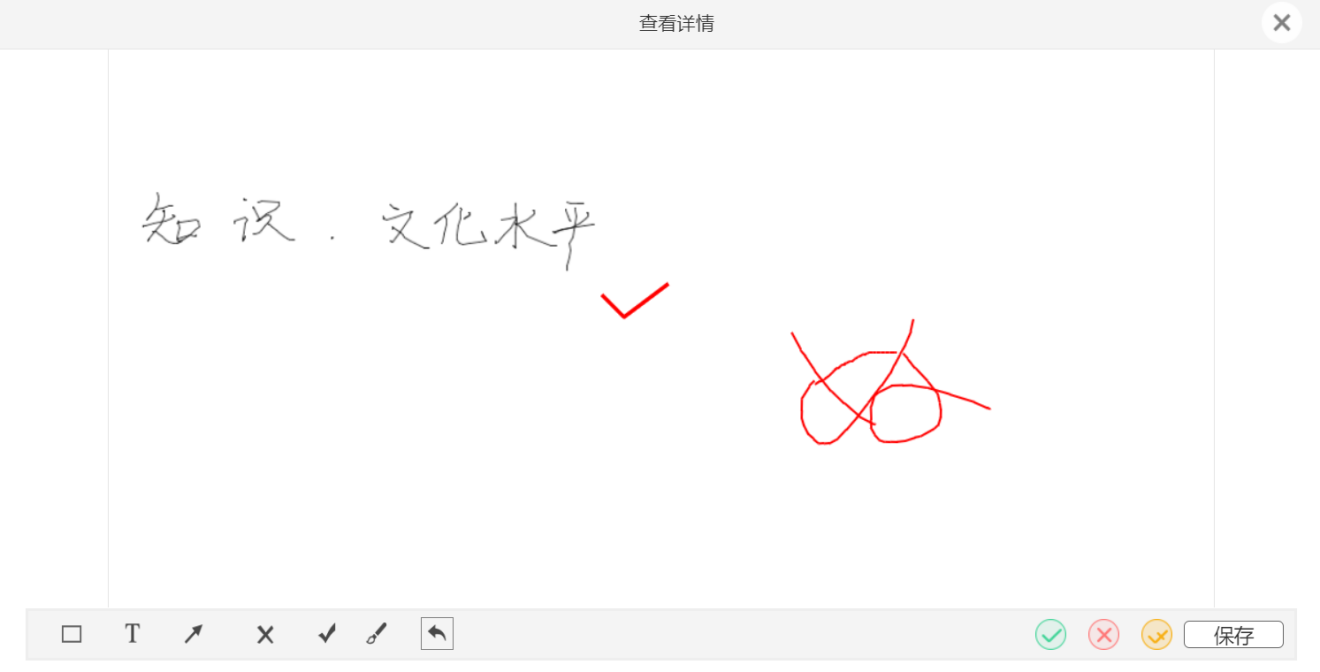 查看详情
知识.文化水平
T
保存